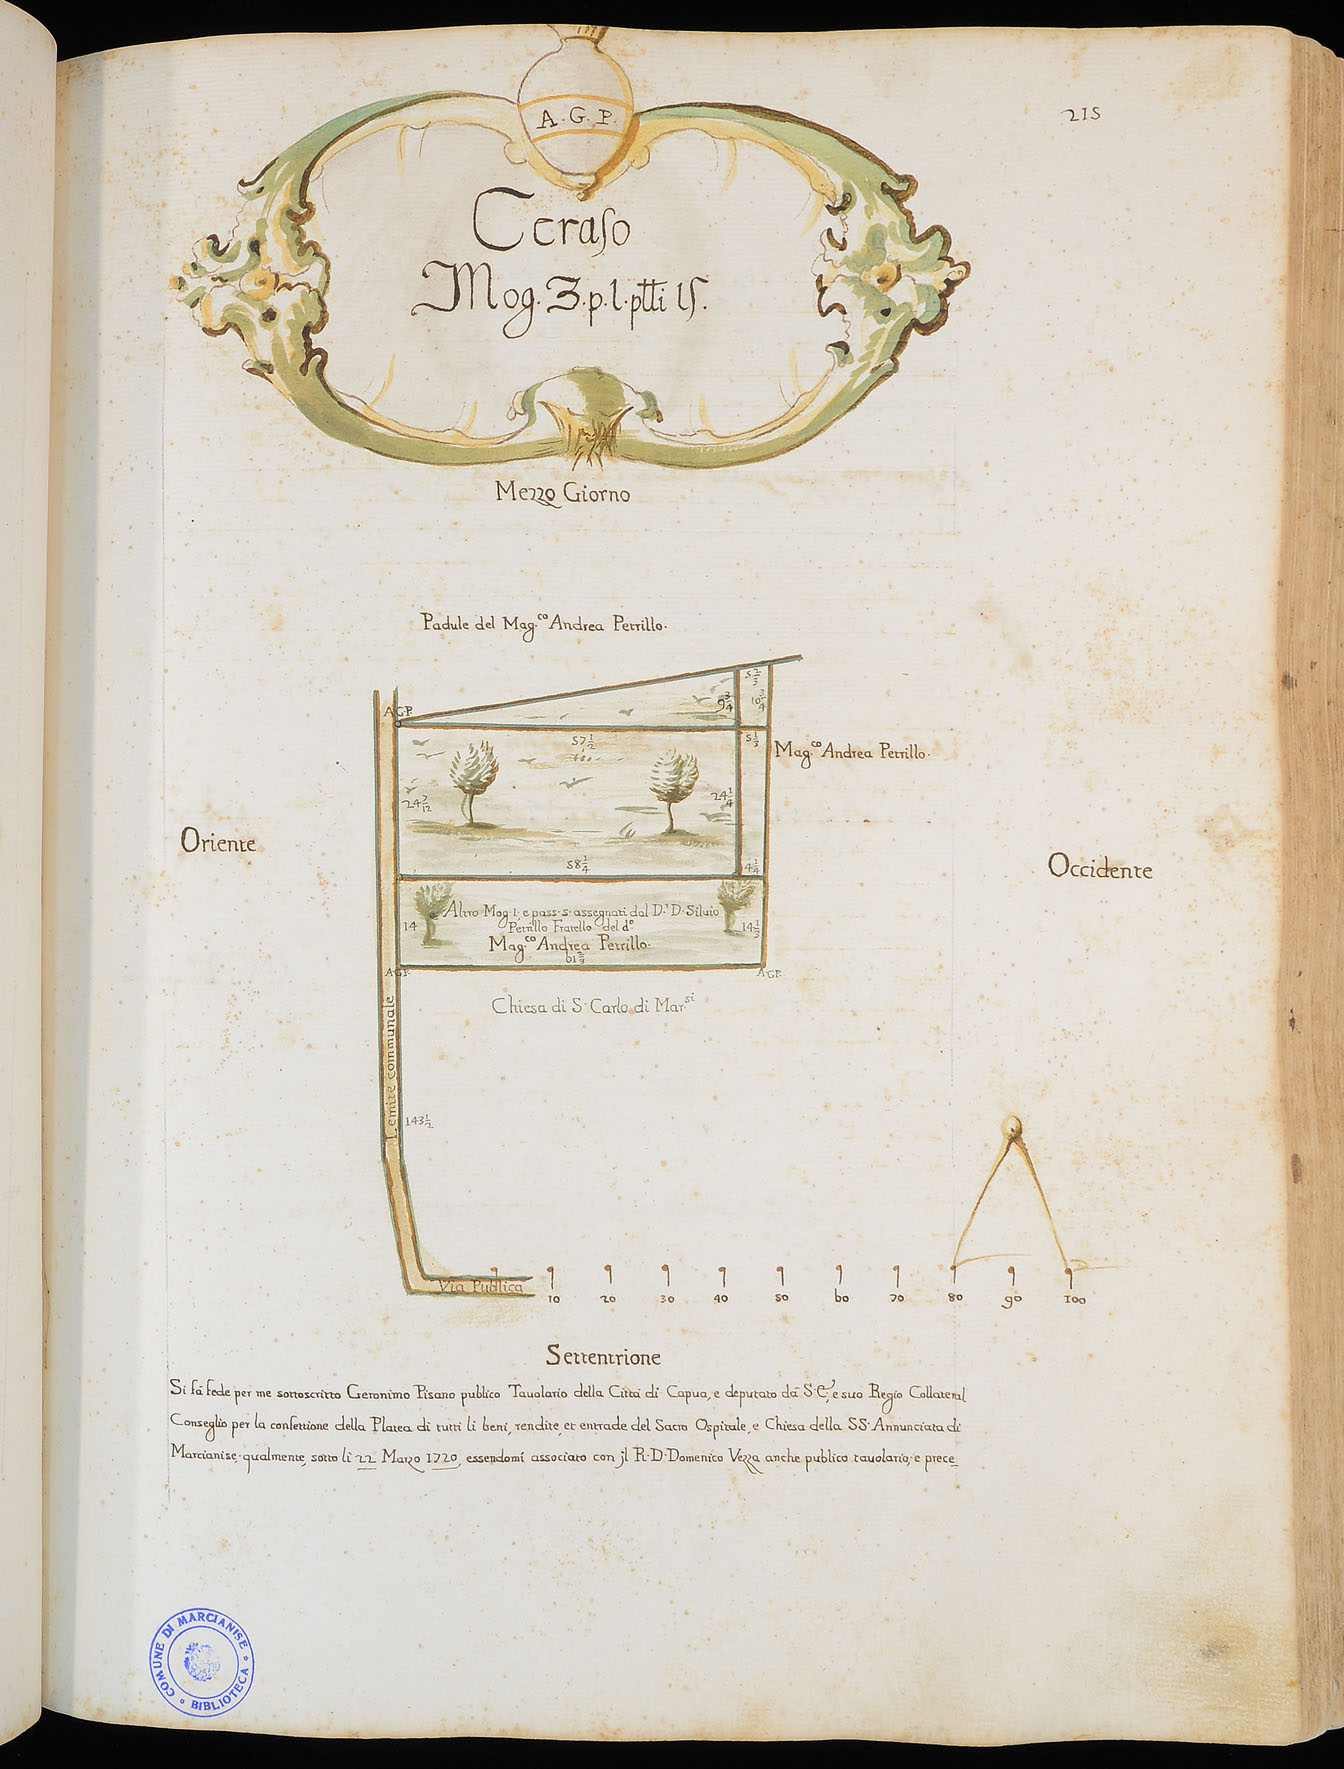 215
A. G. P.
Ceraso
Mog. 3. p. 1. ptti 15.
Mezzo Giorno
Padule del Mag.co Andrea Petrillo.
A G P.
5 2/3
9 3/4
10 3/4
57 1/2
5 1/3
Mag.co Andrea Petrillo.
24 7/12
24 1/4
Oriente
Occidente
58 1/4
4 1/4
Altro Mog. 1; e pass. 5. assegnati dal D.r D. Siluio
Petrillo Fratello del d.o
14
14 1/3
Mag.co Andrea Petrillo.
61 2/3
A G P.
A G P.
Chiesa di S. Carlo di Mar.si
Lemite communale
143 1/2
Via Publica
10 20 30 40 50 60 70 80 90 100
Settentrione
Si fà fede per me sottoscritto Geronimo Pisano publico Tauolario della Città di Capua, e deputato dà S. E., e suo Regio Collateral
Conseglio per la confettione della Platea di tutti li beni, rendite, et entrade del Sacro Ospitale, e Chiesa della SS. Annunciata di
Marcianise, qualmente, sotto li 22 Marzo 1720, essendomi associato con il R. D. Domenico Vezza anche publico tauolario, e prece
COMUNE DI MARCIANISE
BIBLIOTECA